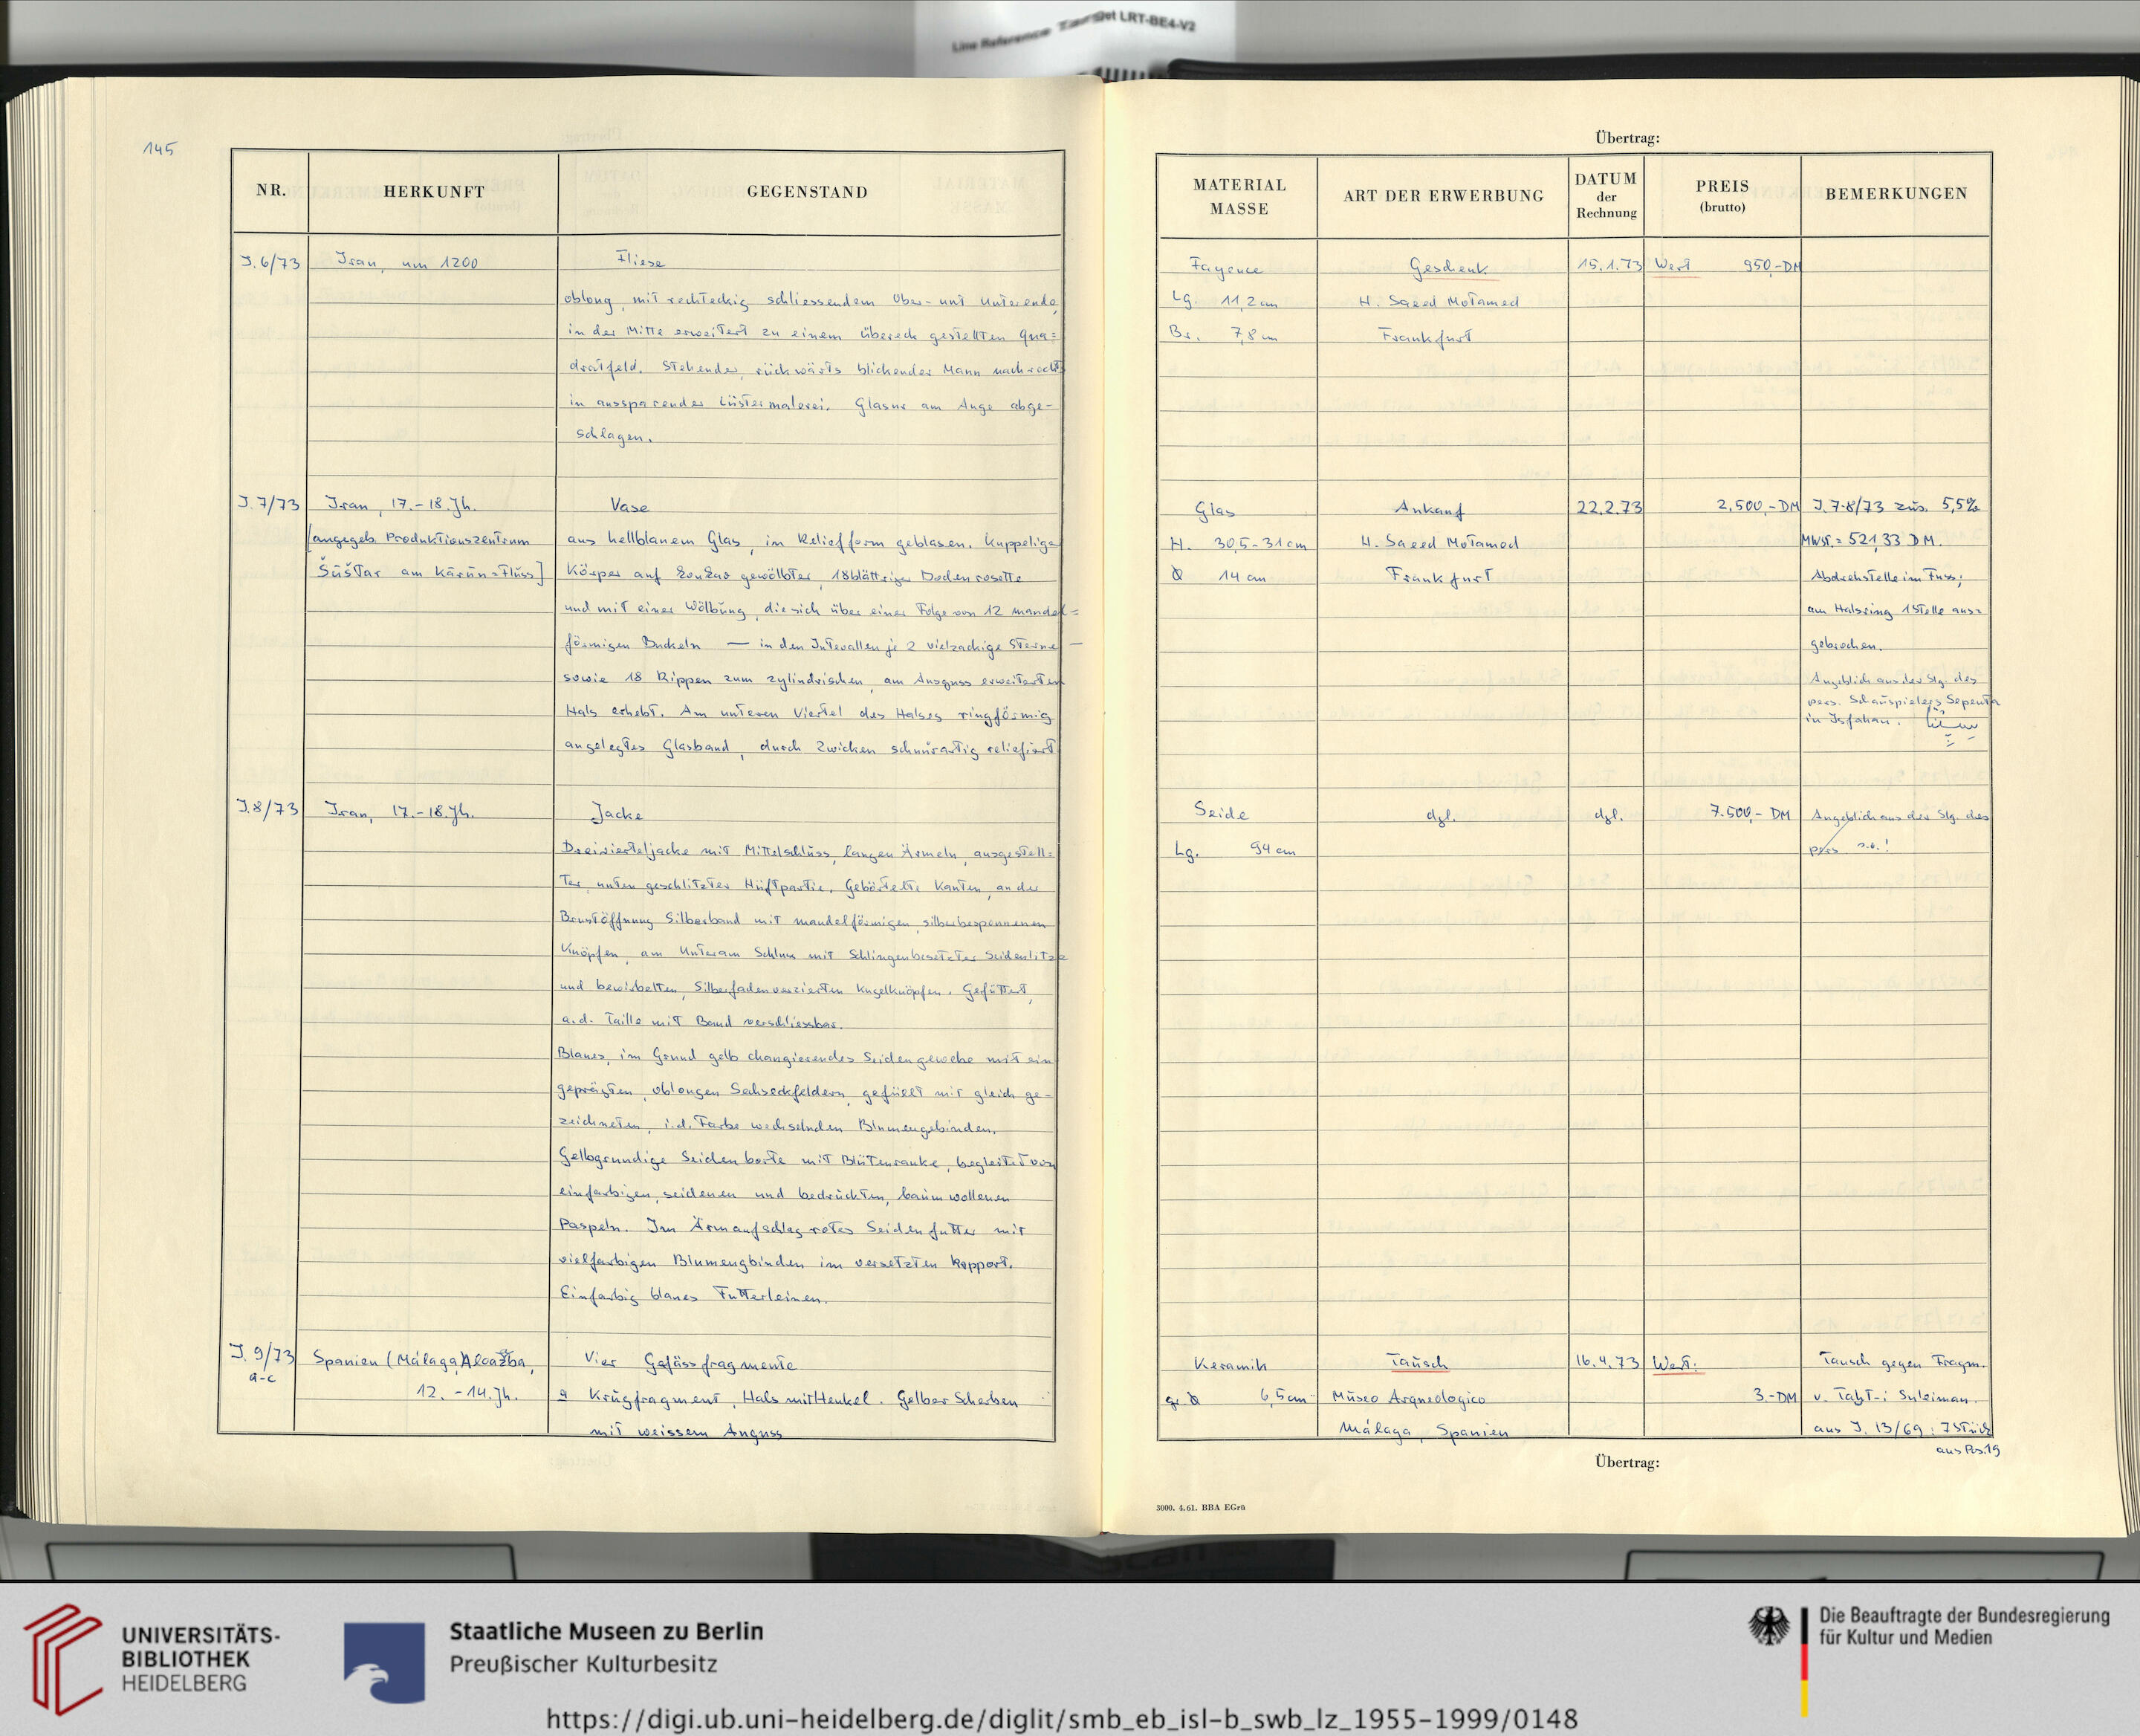 Line Reference Target LRT-BE4-V2
145
NR.
HERKUNFT
GEGENSTAND
J. 6/73
Iran, um 1200
Fliese
oblong, mit rechteckig schliessendem Ober- und Unterende,
in der Mitte erweitert zu einem übereck gestellten Qua=
dratfeld. Stehender, rückwärts blickender Mann nach rechts
in aussparender Lüstermalerei. Glasur am Auge abge-
schlagen.
J. 7/73
Iran, 17.-18. Jh.
[angegeb. Produktionszentrum
Šūštar am Kārūn=Fluss]
Vase
aus hellblauem Glas, in Reliefform geblasen. Kuppeliger
Körper auf konkav gewölbter, 18blättriger Bodenrosette
und mit einer Wölbung, die sich über einer Folge von 12 mandel=
förmigen Buckeln — in den Intevallen je 2 vielzackige Sterne —
sowie 18 Rippen zum zylindrischen, am Ausguss erweiterten
Hals erhebt. Am unteren Viertel des Halses ringförmig
angelegtes Glasband, durch Zwicken schnurartig reliefiert
J. 8/73
Iran, 17.-18. Jh.
Jacke
Dreivierteljacke mit Mittelschluss, langen Ärmeln, ausgestell=
ter, unten geschlitzter Hüftpartie. Gebörtelte Kanten, an der
Brustöffnung Silberband mit mandelförmigen, silberbesponnenen
Knöpfen, am Unterarm Schluss mit Schlingenbesetzter Seidenlitze
und bewirbelten, Silberfadenverzierten Kugelknöpfen. Gefüttert,
a.d. Taille mit Band verschliessbar.
Blaues, im Grund gelb changierendes Seidengewebe mit ein
geprägten, oblongen Sechseckfeldern, gefüllt mit gleich ge-
zeichneten, i.d. Farbe wechselnden Blumengebinden.
Gelbgrundige Seidenborte mit Blütenranke, begleitet von
einfarbigen, seidenen und bedruckten, baumwollenen
Paspeln. Im Ärmaufschlag rotes Seidenfutter mit
vielfarbigen Blumengbinden im versetzten Rapport.
Einfarbig blaues Futterleinen.
J. 9/73
a-c
Spanien (Málaga, Alcazba,
12. - 14. Jh.
Vier Gefässfragmente
a Krugfragment, Hals mit Henkel. Gelber Scherben
mit weissem Anguss
Übertrag:
MATERIAL
MASSE
ART DER ERWERBUNG
DATUM
der
Rechnung
PREIS
(brutto)
BEMERKUNGEN
Fayence
Geschenk
15.1.73
Wert 950,-DM
Lg. 11,2 cm
H. Saeed Motamed
Br. 7,8 cm
Frankfurt
Glas
Ankauf
22.2.73
2.500,-DM
J. 7-8/73 zus. 5,5%
MWSt. = 521,33 DM.
H. 30,5-31 cm
H. Saeed Motamed
Ø 14 cm
Frankfurt
Abdrehstelle im Fuss;
am Halsring 1 Stelle aus=
gebrochen.
Angeblich aus der Slg. des
pers. Schauspielers Sepenta
in Isfahan. سپنتا
Seide
dgl.
dgl.
7.500,- DM
Angeblich aus der Slg. des
pers s.o.!
Lg. 94 cm
Keramik
Tausch
16.4.73
Wert:
3.-DM
Tausch gegen Fragm.
gr. Ø 6,5 cm
Museo Arqueologico
Málaga, Spanien
v. Taḫt-i Suleiman.
aus J. 13/69: 7 Stück
aus Pos. 19
Übertrag:
3000. 4.61. BBA EGrü
UNIVERSITÄTS-
BIBLIOTHEK
HEIDELBERG
Staatliche Museen zu Berlin
Preußischer Kulturbesitz
Die Beauftragte der Bundesregierung
für Kultur und Medien
https://digi.ub.uni-heidelberg.de/diglit/smb_eb_isl-b_swb_lz_1955-1999/0148